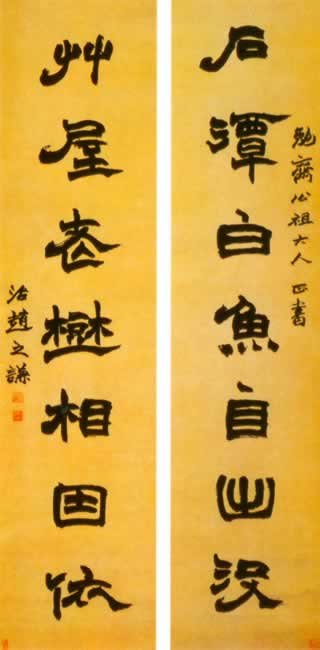 勉齋公祖大人 正書
石潭白魚自出没
艸屋相因依
治趙之謙